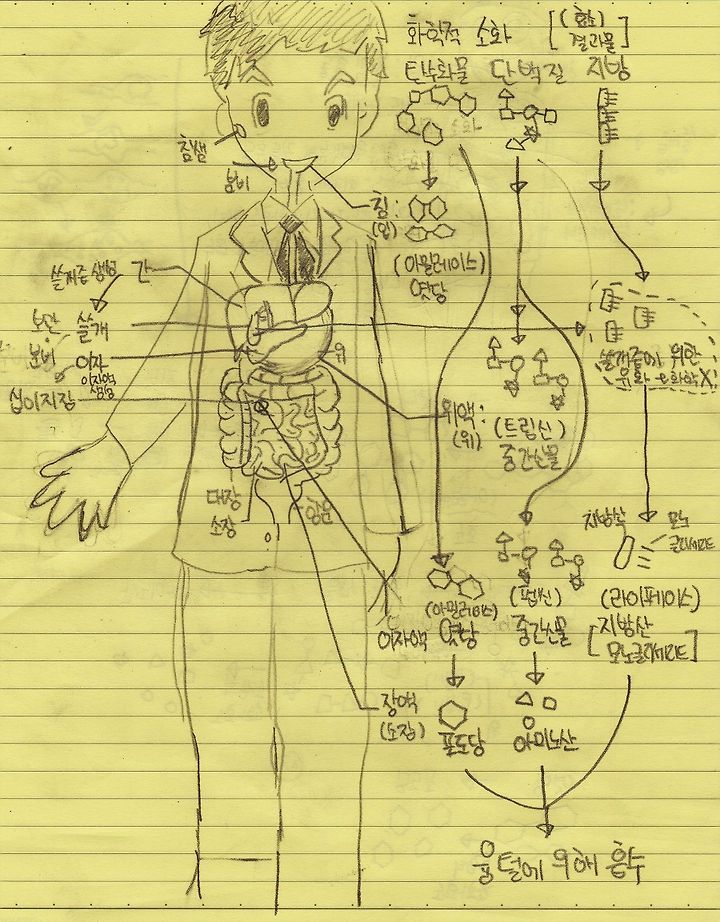 화학적 소화
[(효소)
결과물]
탄수화물 단백질 지방
침샘
분비
침:
(입)
(아밀레이스)
엿당
쓸개즙 생성 간
보관 쓸개
분비 이자
이자액
생성
십이지장
위
쓸개즙에 위한
유화 은화학X
위액:
(위)
(트립신)
중간산물
대장
소장
항문
지방산
모노
글리세리드
이자액
(아밀레이스)
엿당
(펩신)
중간산물
(라이페이스)
[지방산
모노글리세리드]
장액
(소장)
포도당
아미노산
융털에 의해 흡수